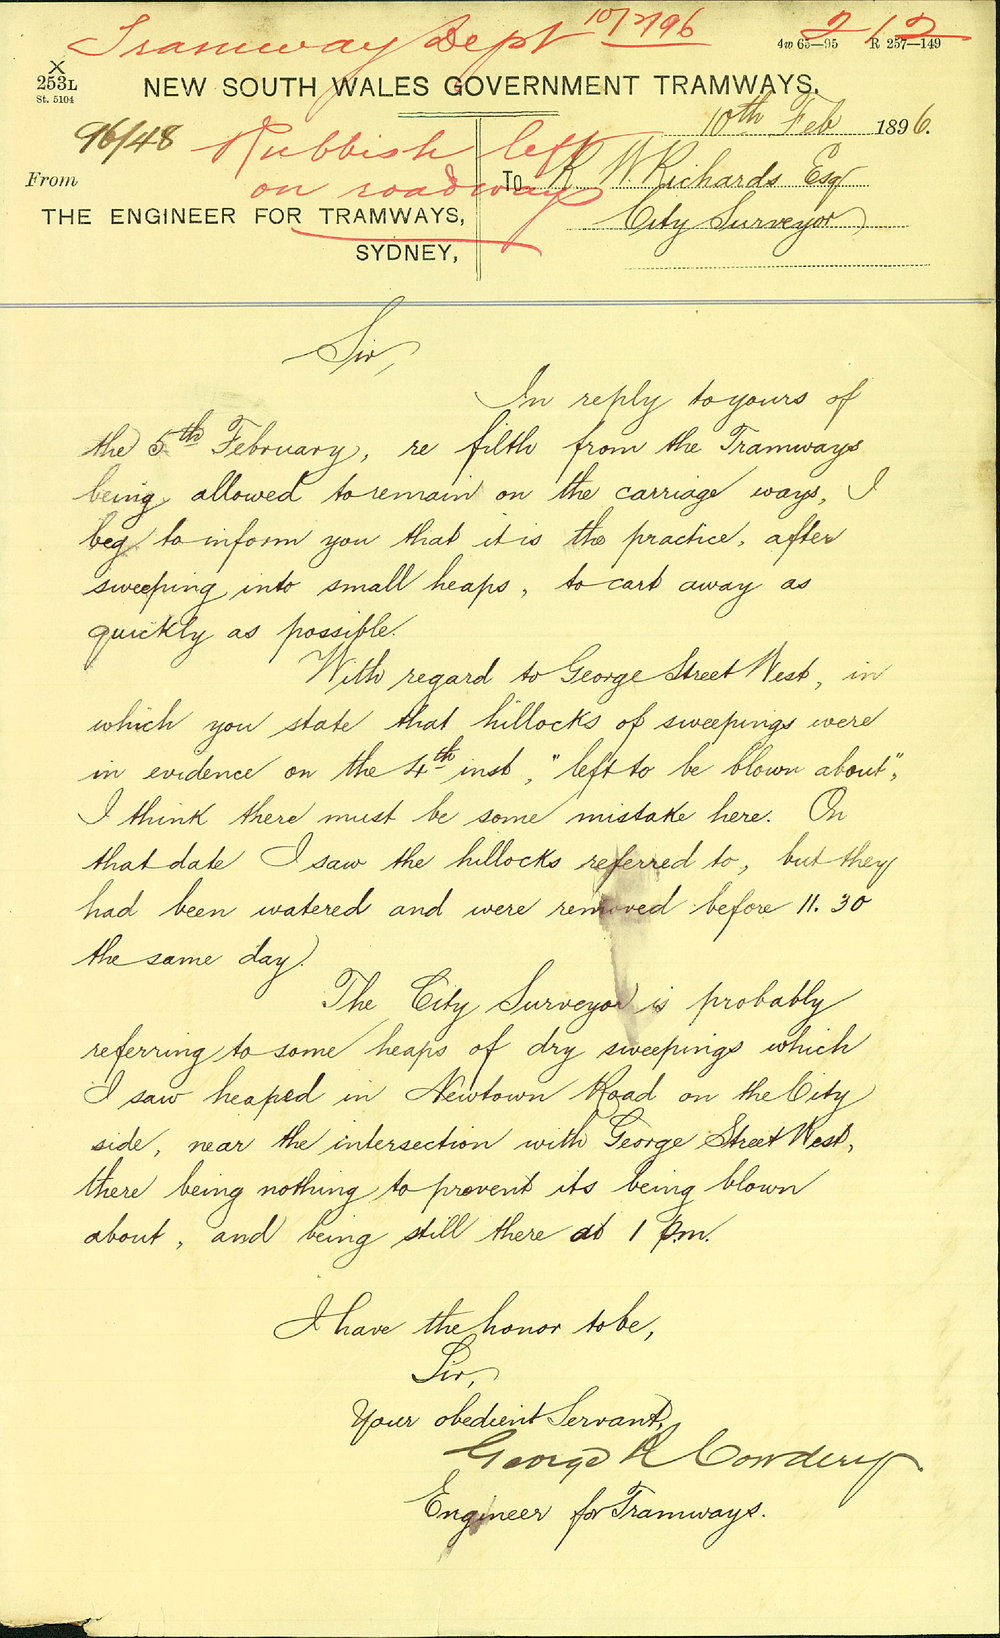 Tramway Dept 10/2/96
2/2
4w 65—95 R 257—149
X
253L
St. 5104
NEW SOUTH WALES GOVERNMENT TRAMWAYS.
96/48
Rubbish left
on roadway
10th Feb 1896.
From
THE ENGINEER FOR TRAMWAYS,
SYDNEY,
To R W Richards Esq
City Surveyor
Sir,
In reply to yours of
the 5th February, re filth from the Tramways
being allowed to remain on the carriage ways, I
beg to inform you that it is the practice, after
sweeping into small heaps, to cart away as
quickly as possible.
With regard to George Street West, in
which you state that hillocks of sweepings were
in evidence on the 4th inst, "left to be blown about",
I think there must be some mistake here. On
that date I saw the hillocks referred to, but they
had been watered and were removed before 11.30
the same day.
The City Surveyor is probably
referring to some heaps of dry sweepings which
I saw heaped in Newtown Road on the City
side, near the intersection with George Street West,
there being nothing to prevent its being blown
about, and being still there at 1 p.m.
I have the honor to be,
Sir,
Your obedient Servant,
George R Cowdery
Engineer for Tramways.